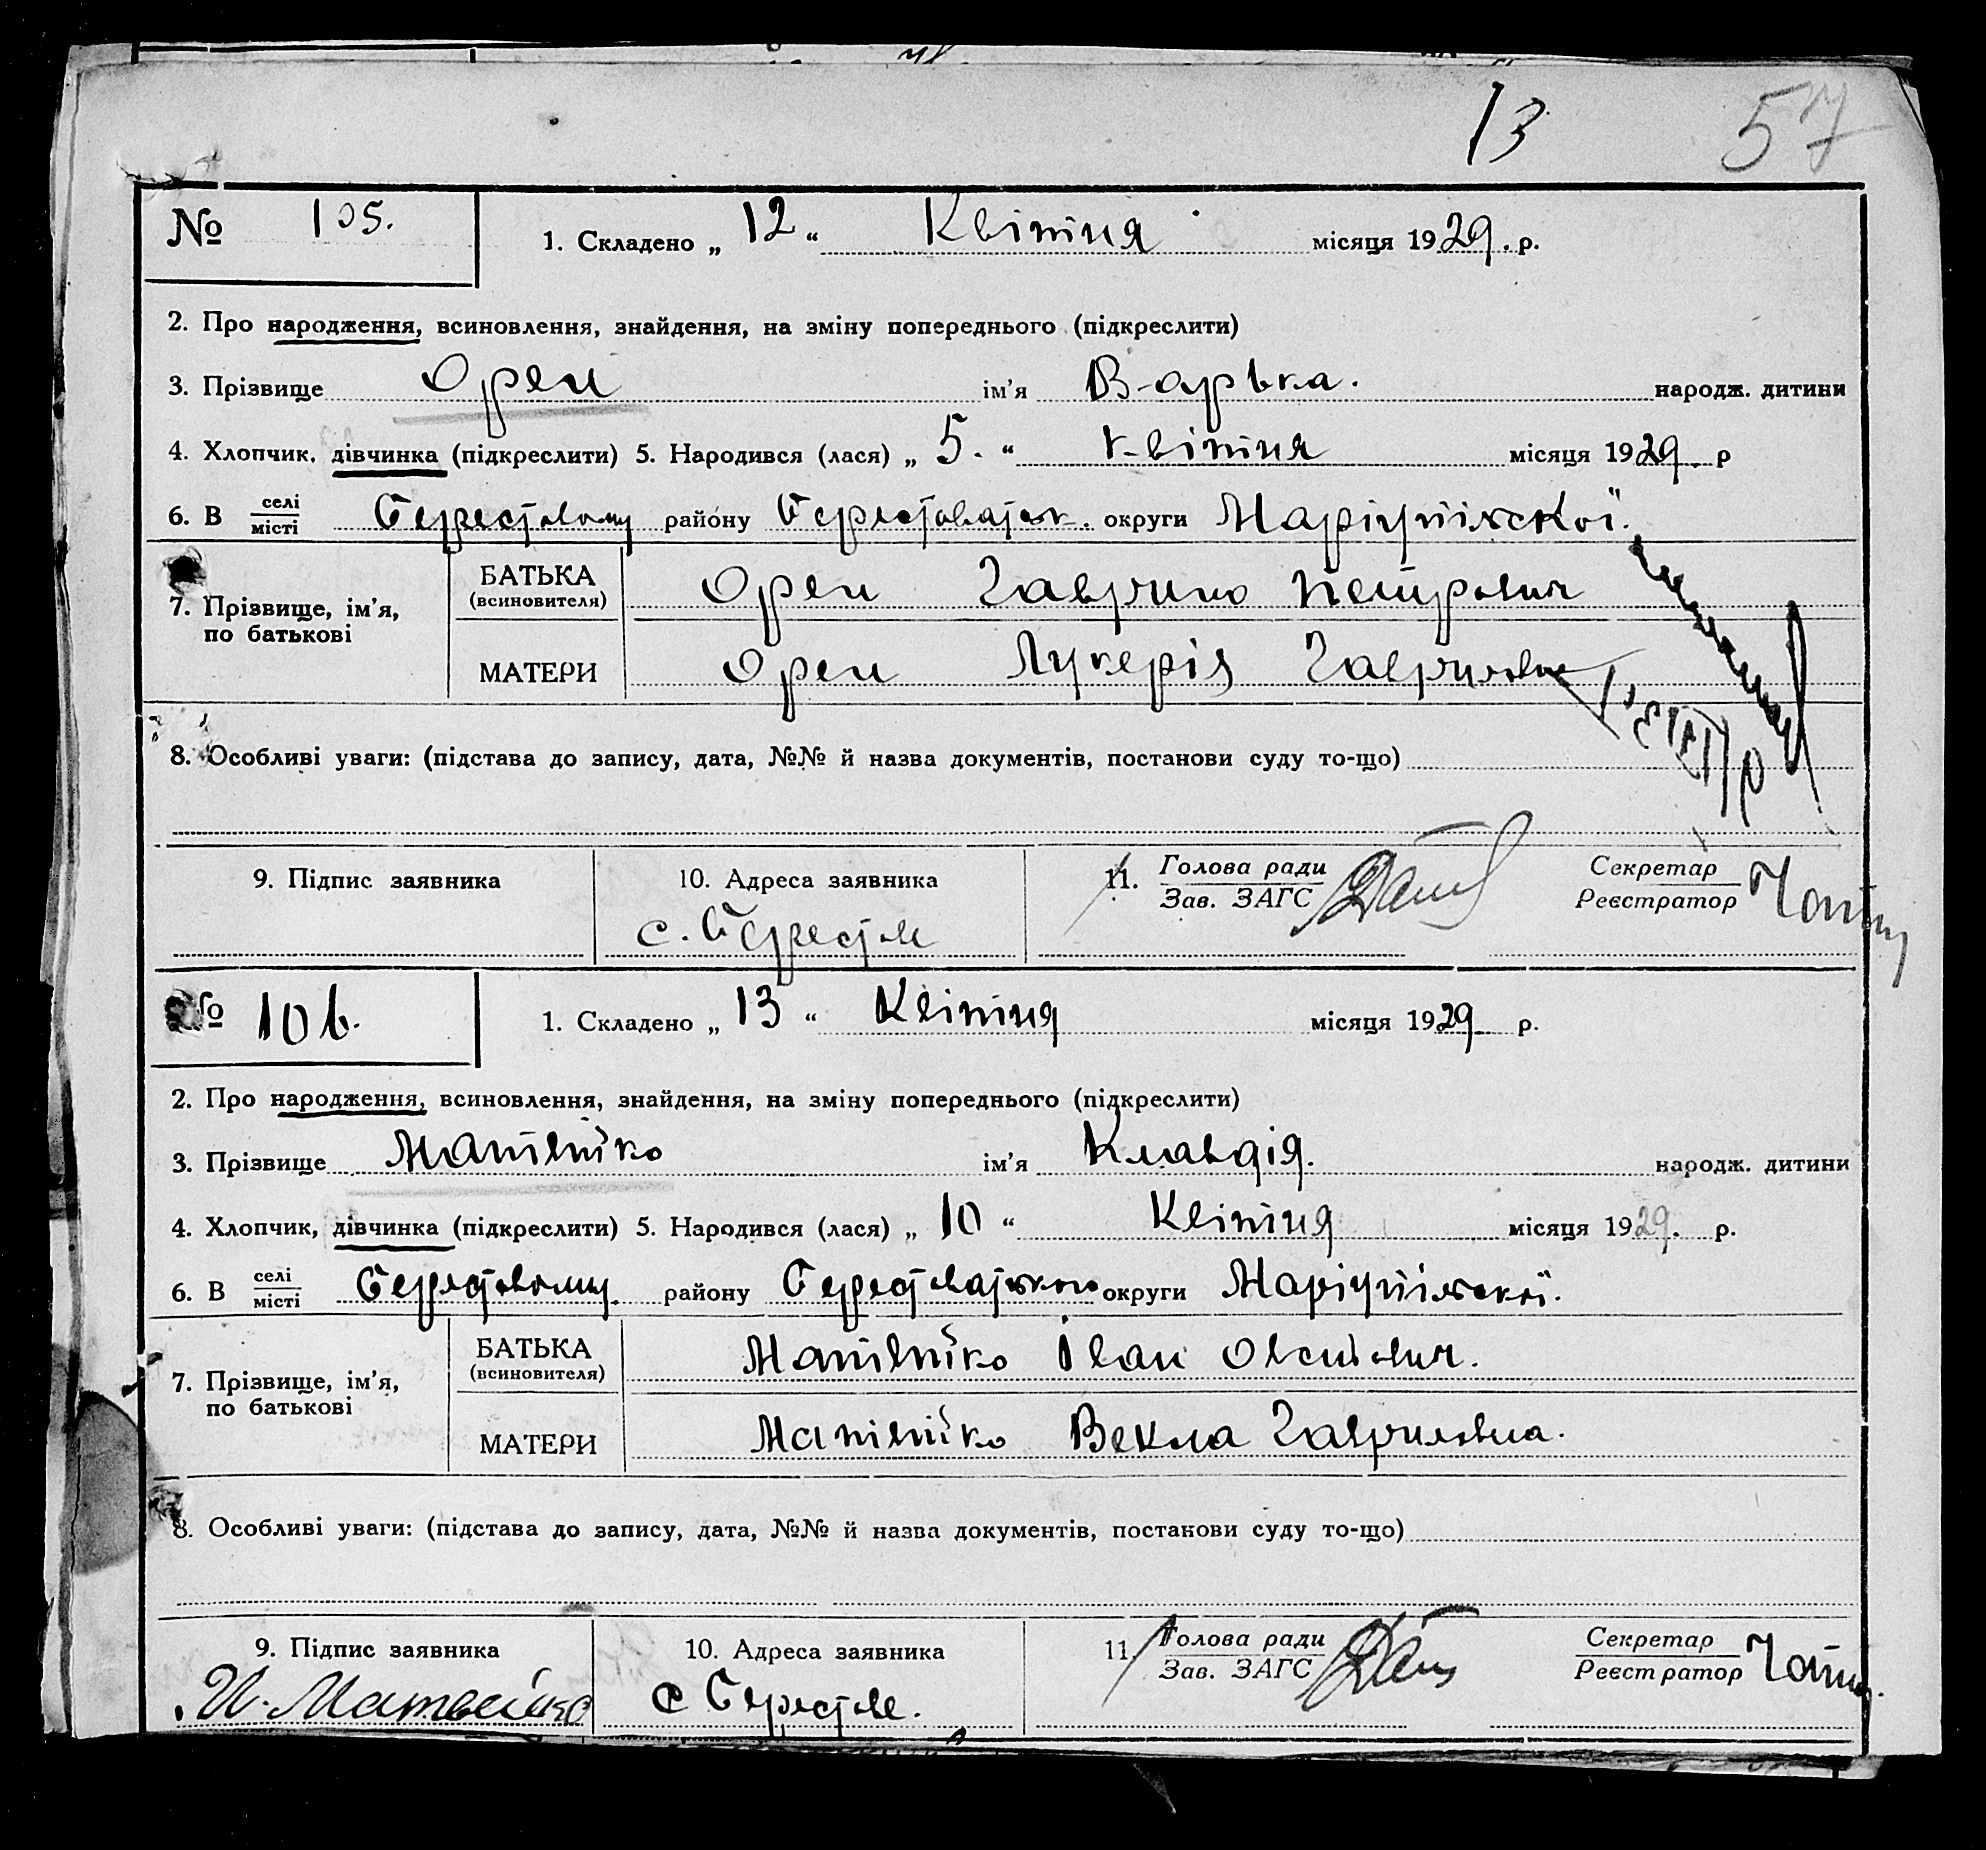 13 57
№ 105. 1. Складено „ 12 “ Квітня місяця 1929. р.
2. Про народження, всиновлення, знайдення, на зміну попереднього (підкреслити)
3. Прізвище Орел ім’я Варька. народж. дитини
4. Хлопчик, дівчинка (підкреслити) 5. Народився (лася) „ 5. “ квітня місяця 1929. р
6. В селі/місті Берестовому району Берестоватськ. округи Маріупільскої.
7. Прізвище, ім’я, по батькові
БАТЬКА (всиновителя) Орел Гаврило Петрович
МАТЕРИ Орел Лукерія Гавриловна
8. Особливі уваги: (підстава до запису, дата, №№ й назва документів, постанови суду то-що)
9. Підпис заявника 10. Адреса заявника 11. Голова ради/Зав. ЗАГС Секретар/Реєстратор
с. Берестове
№ 106. 1. Складено „ 13 “ Квітня місяця 1929 р.
2. Про народження, всиновлення, знайдення, на зміну попереднього (підкреслити)
3. Прізвище Матвейко ім’я Клавдія. народж. дитини
4. Хлопчик, дівчинка (підкреслити) 5. Народився (лася) „ 10 “ Квітня місяця 1929. р.
6. В селі/місті Берестовому району Берестоватського округи Маріупільскої.
7. Прізвище, ім’я, по батькові
БАТЬКА (всиновителя) Матвейко Іван Овсійович.
МАТЕРИ Матвейко Векла Гавриловна.
8. Особливі уваги: (підстава до запису, дата, №№ й назва документів, постанови суду то-що)
9. Підпис заявника 10. Адреса заявника 11. Голова ради/Зав. ЗАГС Секретар/Реєстратор
И. Матвейко с Берестове.